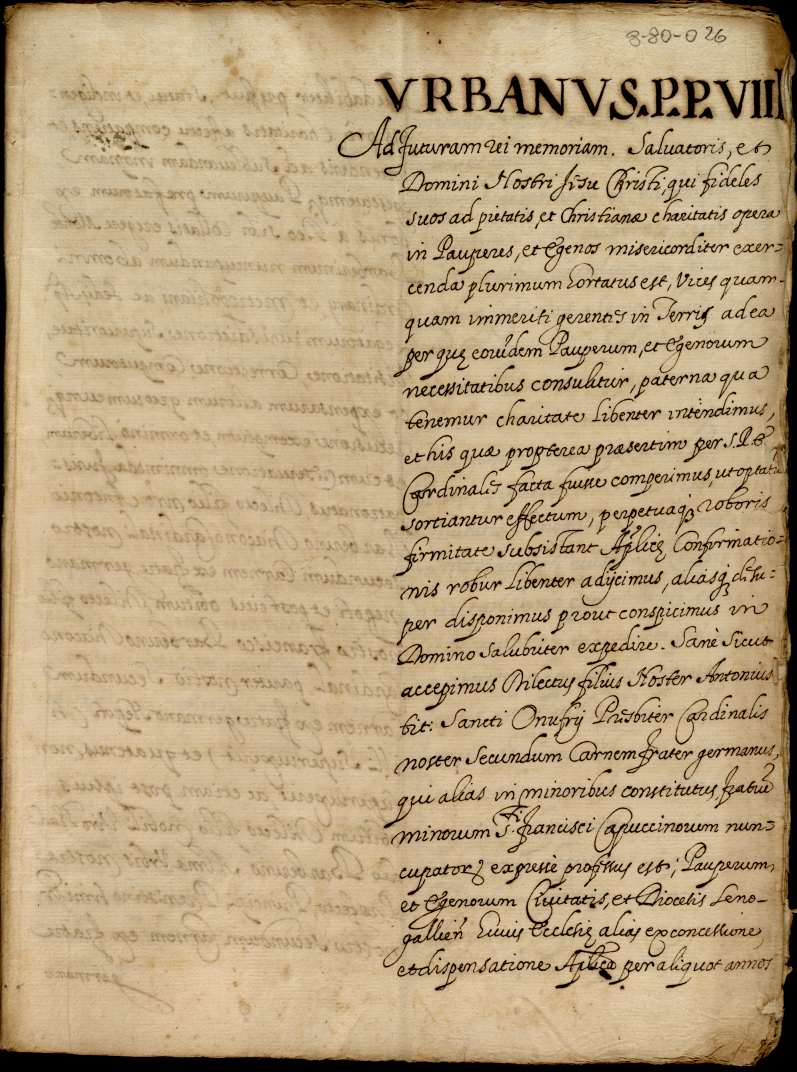 8-80-0 26
VRBANVS.P.P.VIII
Ad futuram rei memoriam. Saluatoris, et
Domini Nostri Jesu Christi, qui fideles
suos ad pietatis, et Christianæ charitatis opera
in Pauperes, et Egenos misericorditer exer-
cenda plurimum hortatus est, Vices quam-
quam immeriti gerentes in Terris ad ea
per quę eorūdem Pauperum, et Egenorum
necessitatibus consulitur, paterna qua
tenemur charitate libenter intendimus,
et his quæ propterea præsertim per S.R.E.
Cardinales facta fuisse comperimus, ut optatū
sortiantur effectum, perpetuaq; roboris
firmitate subsistant Aplicę Confirmatio-
nis robur libenter adijcimus, aliasq; desu-
per disponimus prout conspicimus in
Domino salubriter expedire. Sanè sicut
accepimus Dilectus filius Noster Antonius
tit: Sancti Onufrij Prēsbiter Cardinalis
noster secundum Carnem frater germanus,
qui alias in minoribus constitutus fratrū
minorum S.ti francisci Capuccinorum nun-
cupator; expresse professus est; Pauperum,
et Egenorum Ciuitatis, et Diocesis Seno-
gallien̄ cuius Ecclesię alias ex concessione,
et dispensatione Aplica per aliquot annos